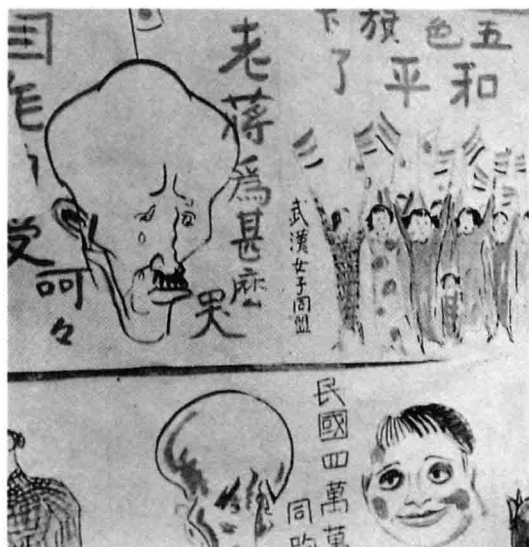 五色旗下
和平了
武漢女子同盟
老蔣爲甚麽哭
呵々
民國四萬萬
同胞